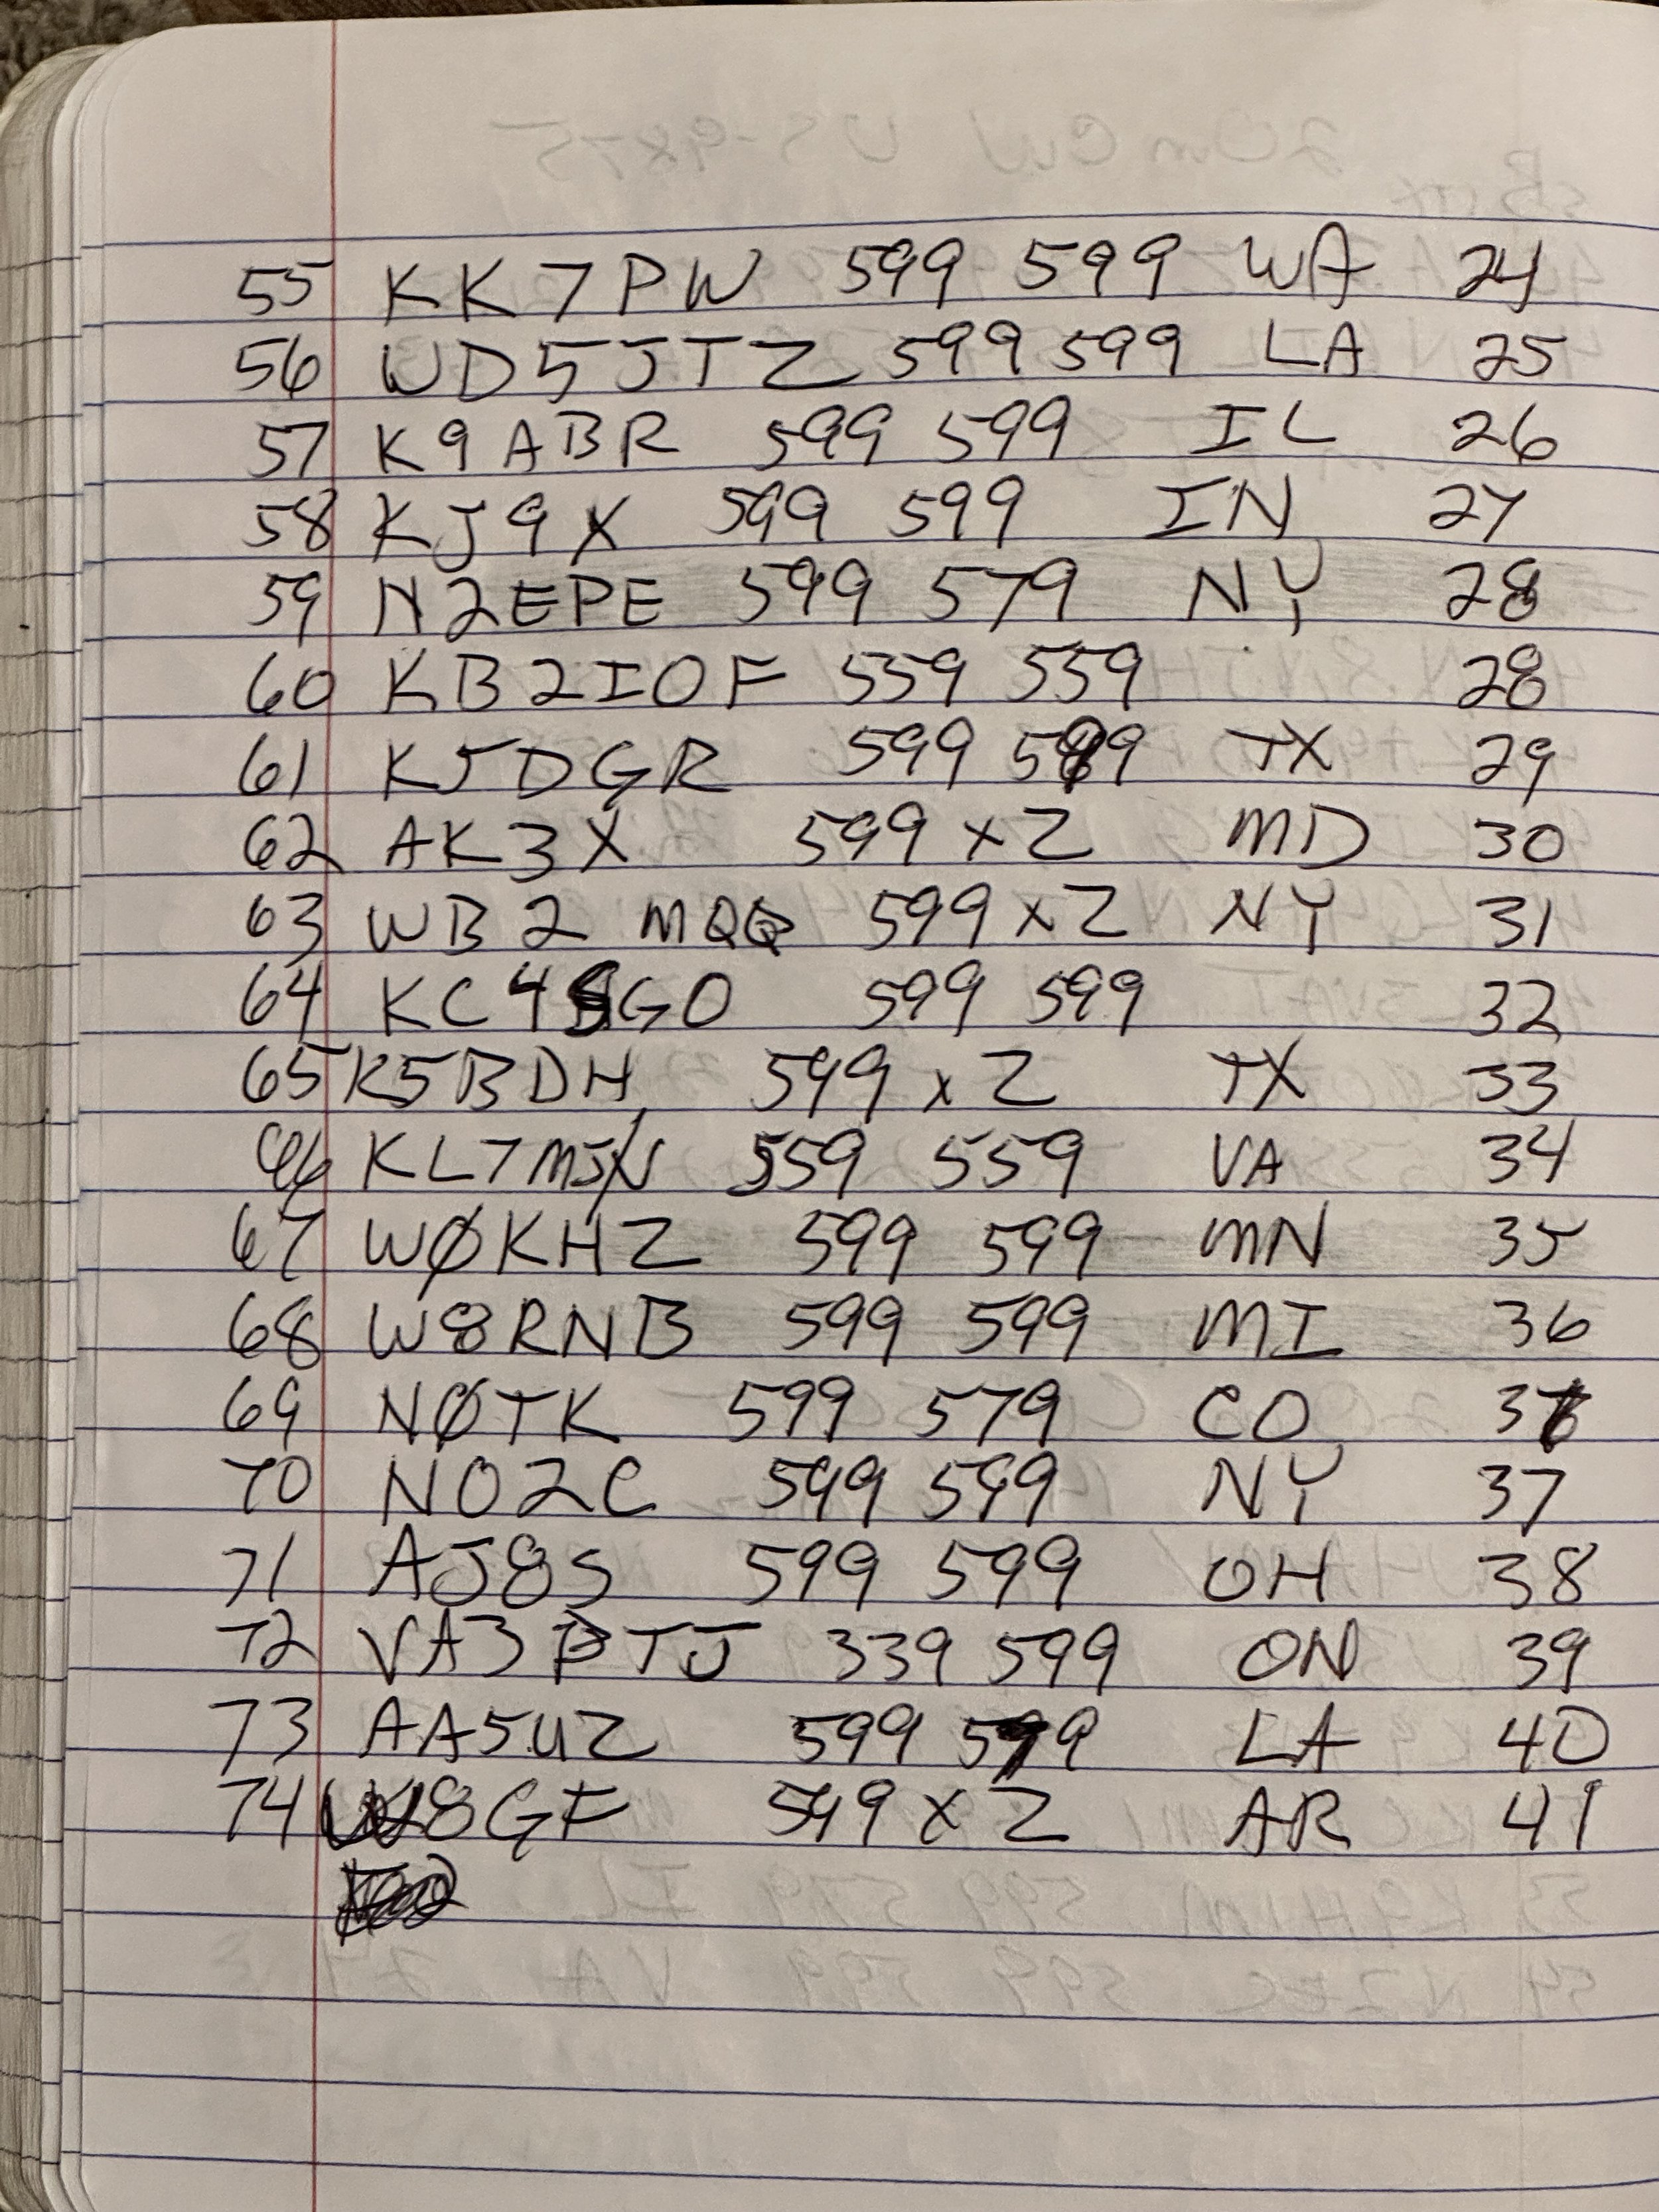 55 KK7PW 599 599 WA 24
56 WD5JTZ 599 599 LA 25
57 K9ABR 599 599 IL 26
58 KJ9X 599 599 IN 27
59 N2EPE 599 579 NY 28
60 KB2IOF 559 559 28
61 K5DGR 599 TX 29
62 AK3X 599 x2 MD 30
63 WB2MQQ 599 x2 NY 31
64 599 599 32
65 K5BDH 599 x2 TX 33
66 559 559 VA 34
67 WØKHZ 599 599 MN 35
68 W8RNB 599 599 MI 36
69 NØTK 599 579 CO
70 NO2C 599 599 NY 37
71 AJ8S 599 599 OH 38
72 VA3PTJ 339 599 ON 39
73 AA5UZ 599 LA 40
74 599 x2 AR 41